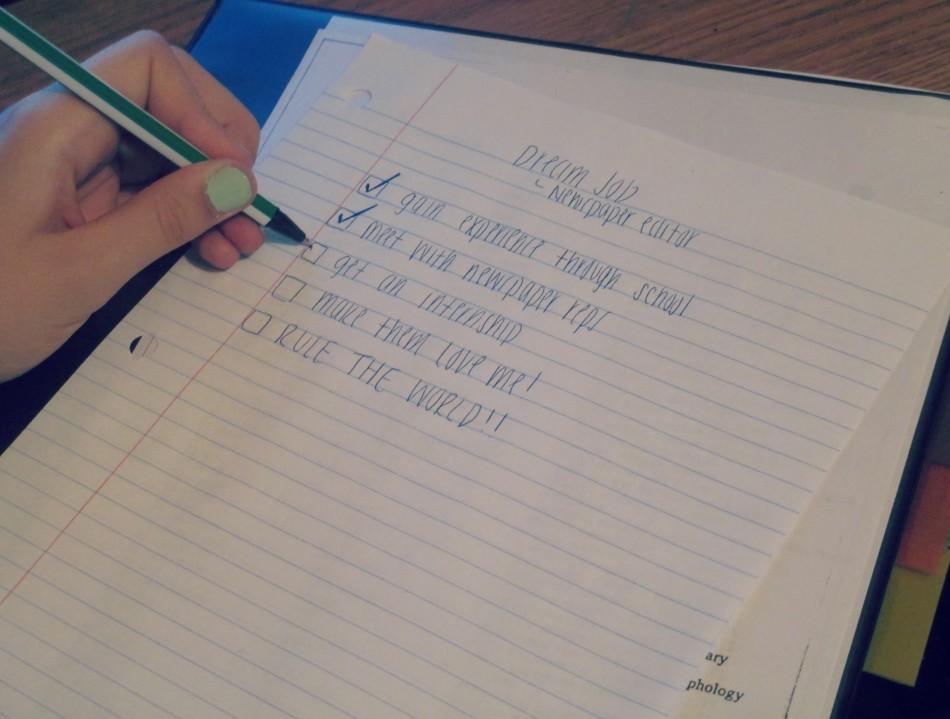 Dream JOB
Newspaper editor
gain experience through school
meet with newspaper reps
get an internship
make them love me!
RULE THE WORLD!!
ary
phology